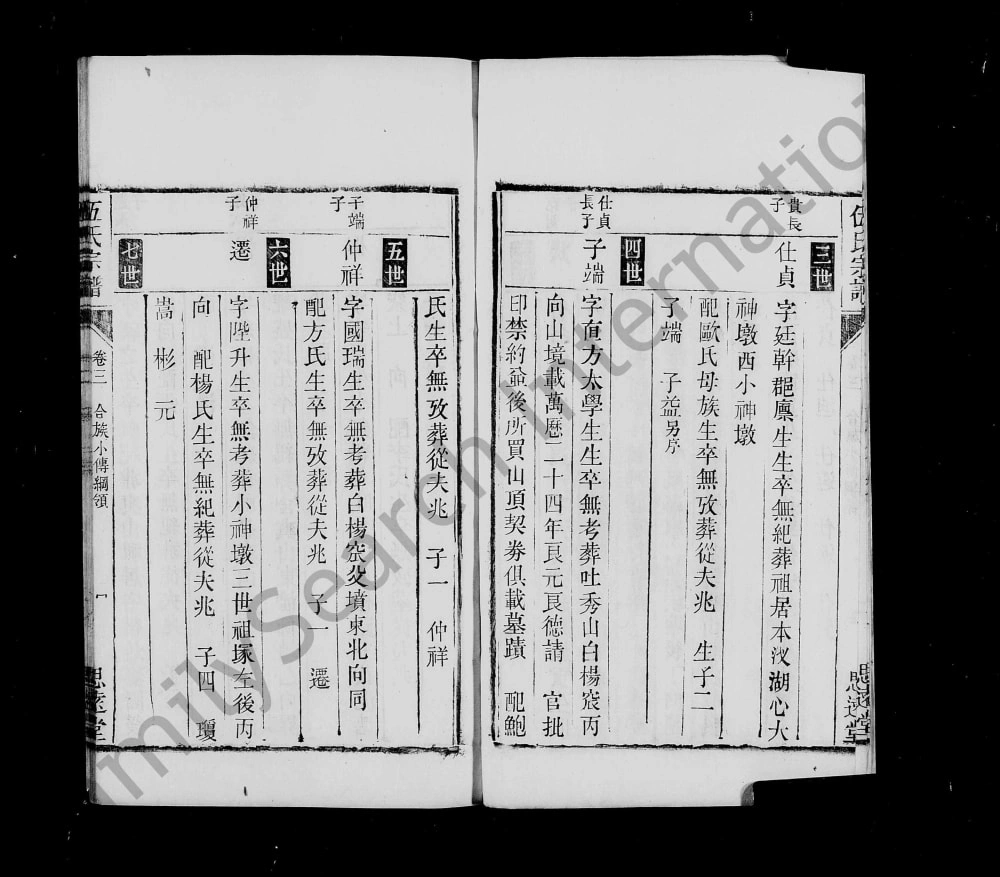 伍氏宗譜
思遠堂
三世
貴長子
仕貞 字廷幹郡廩生生卒無紀葬祖居本汊湖心大
神墩西小神墩
配歐氏母族生卒無攷葬從夫兆 生子二
子端 子益另序
四世
仕貞長子
子端 字直方太學生生卒無考葬吐秀山白楊窊丙
向山境載萬曆二十四年艮元艮德請 官批
印禁約益後所買山頂契券俱載墓蹟 配鮑
氏生卒無攷葬從夫兆 子一 仲祥
五世
子端子
仲祥 字國瑞生卒無考葬白楊窊父墳東北向同
配方氏生卒無攷葬從夫兆 子一 遷
六世
仲祥子
遷 字陞升生卒無考葬小神墩三世祖塚左後丙
向 配楊氏生卒無紀葬從夫兆 子四 瓊
嵩 彬 元
七世
伍氏宗譜
卷三 合族小傳綱領
思遠堂
FamilySearch International